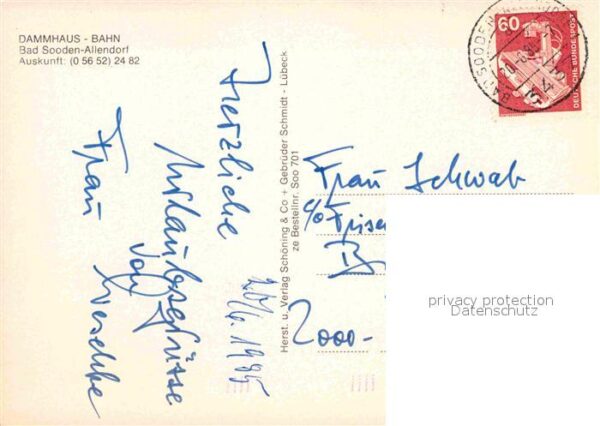 DAMMHAUS - BAHN
Bad Sooden-Allendorf
Auskunft: (0 56 52) 24 82
Herzliche
Urlaubsgrüsse
von
Frau
1985
Herst. u. Verlag Schöning & Co + Gebrüder Schmidt - Lübeck
ze Bestellnr. Soo 701
60
DEUTSCHE BUNDESPOST
BAD SOODEN-
Frau Schwab
c/o Frise
2000-
privacy protection
Datenschutz